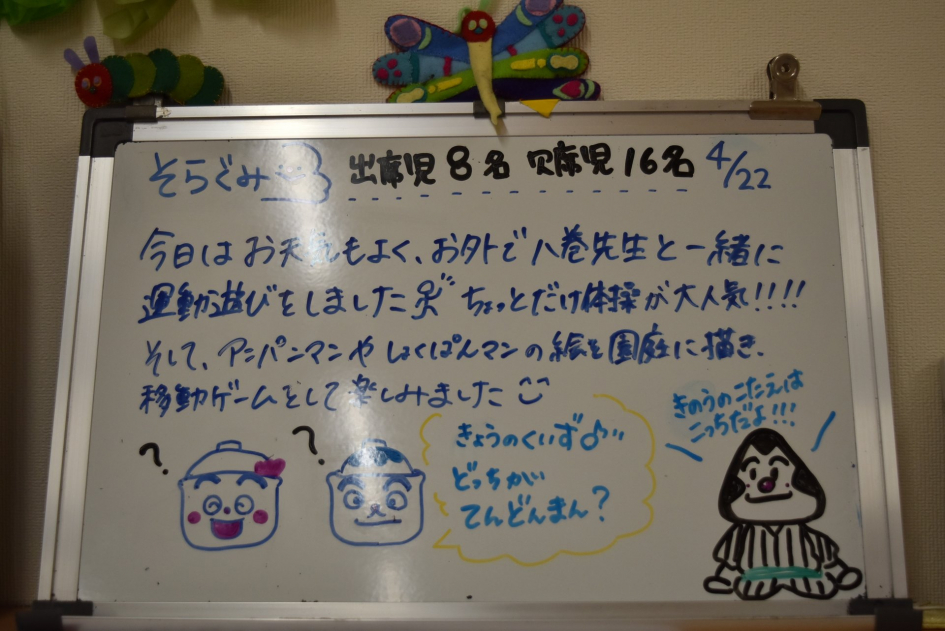 そらぐみ 出席児 8名 欠席児 16名 4/22
今日はお天気もよく、お外で八巻先生と一緒に
運動遊びをしました♪ ちょっとだけ体操が大人気!!!!
そして、アンパンマンやしょくぱんマンの絵を園庭に描き、
移動ゲームをして楽しみました
?
?
きょうのくいず♪
どっちがい
てんどんまん?
きのうのこたえは
こっちだよ!!!